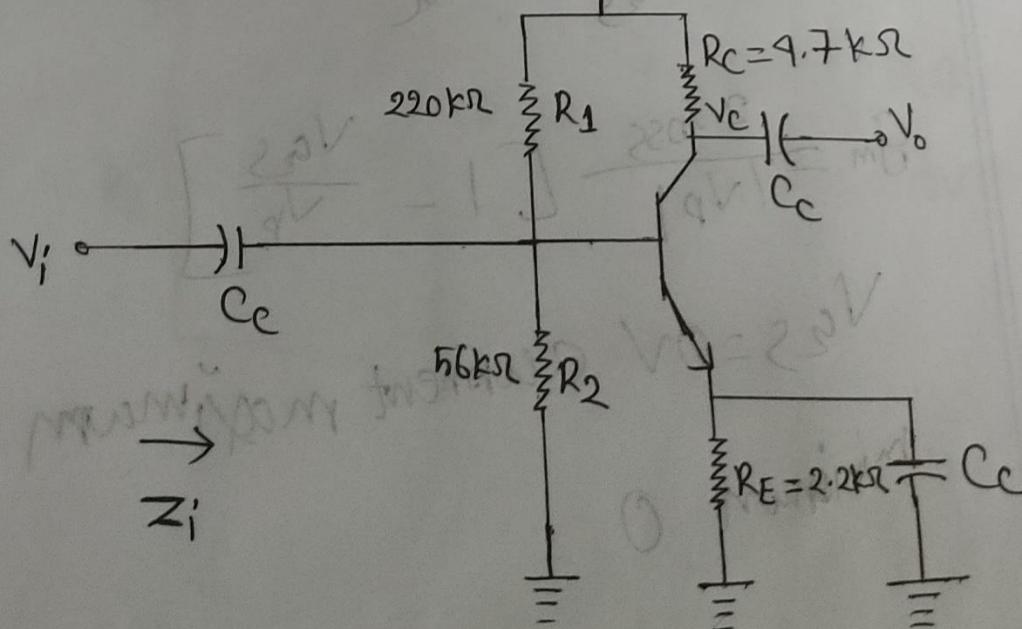 RC=4.7kΩ
220kΩ R1
VC
Vo
CC
Vi
CC
56kΩ R2
RE=2.2kΩ
CC
Zi